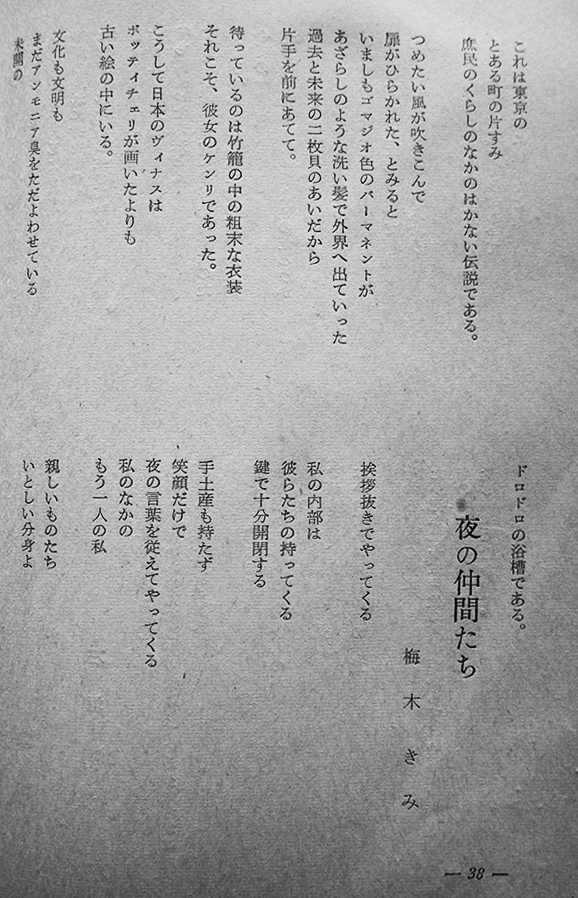 これは東京の
とある町の片すみ
庶民のくらしのなかのはかない伝説である。
つめたい風が吹きこんで
扉がひらかれた、とみると
いましもゴマジオ色のパーマネントが
あざらしのような洗い髪で外界へ出ていった
過去と未来の二枚貝のあいだから
片手を前にあてて。
待っているのは竹籠の中の粗末な衣装
それこそ、彼女のケンリであった。
こうして日本のヴィナスは
ボッティチェリが画いたよりも
古い絵の中にいる。
文化も文明も
まだアンモニア臭をただよわせている
未開の
ドロドロの浴槽である。
夜の仲間たち
梅木きみ
挨拶抜きでやってくる
私の内部は
彼らたちの持ってくる
鍵で十分開閉する
手土産も持たず
笑顔だけで
夜の言葉を従えてやってくる
私のなかの
もう一人の私
親しいものたち
いとしい分身よ
— 38 —